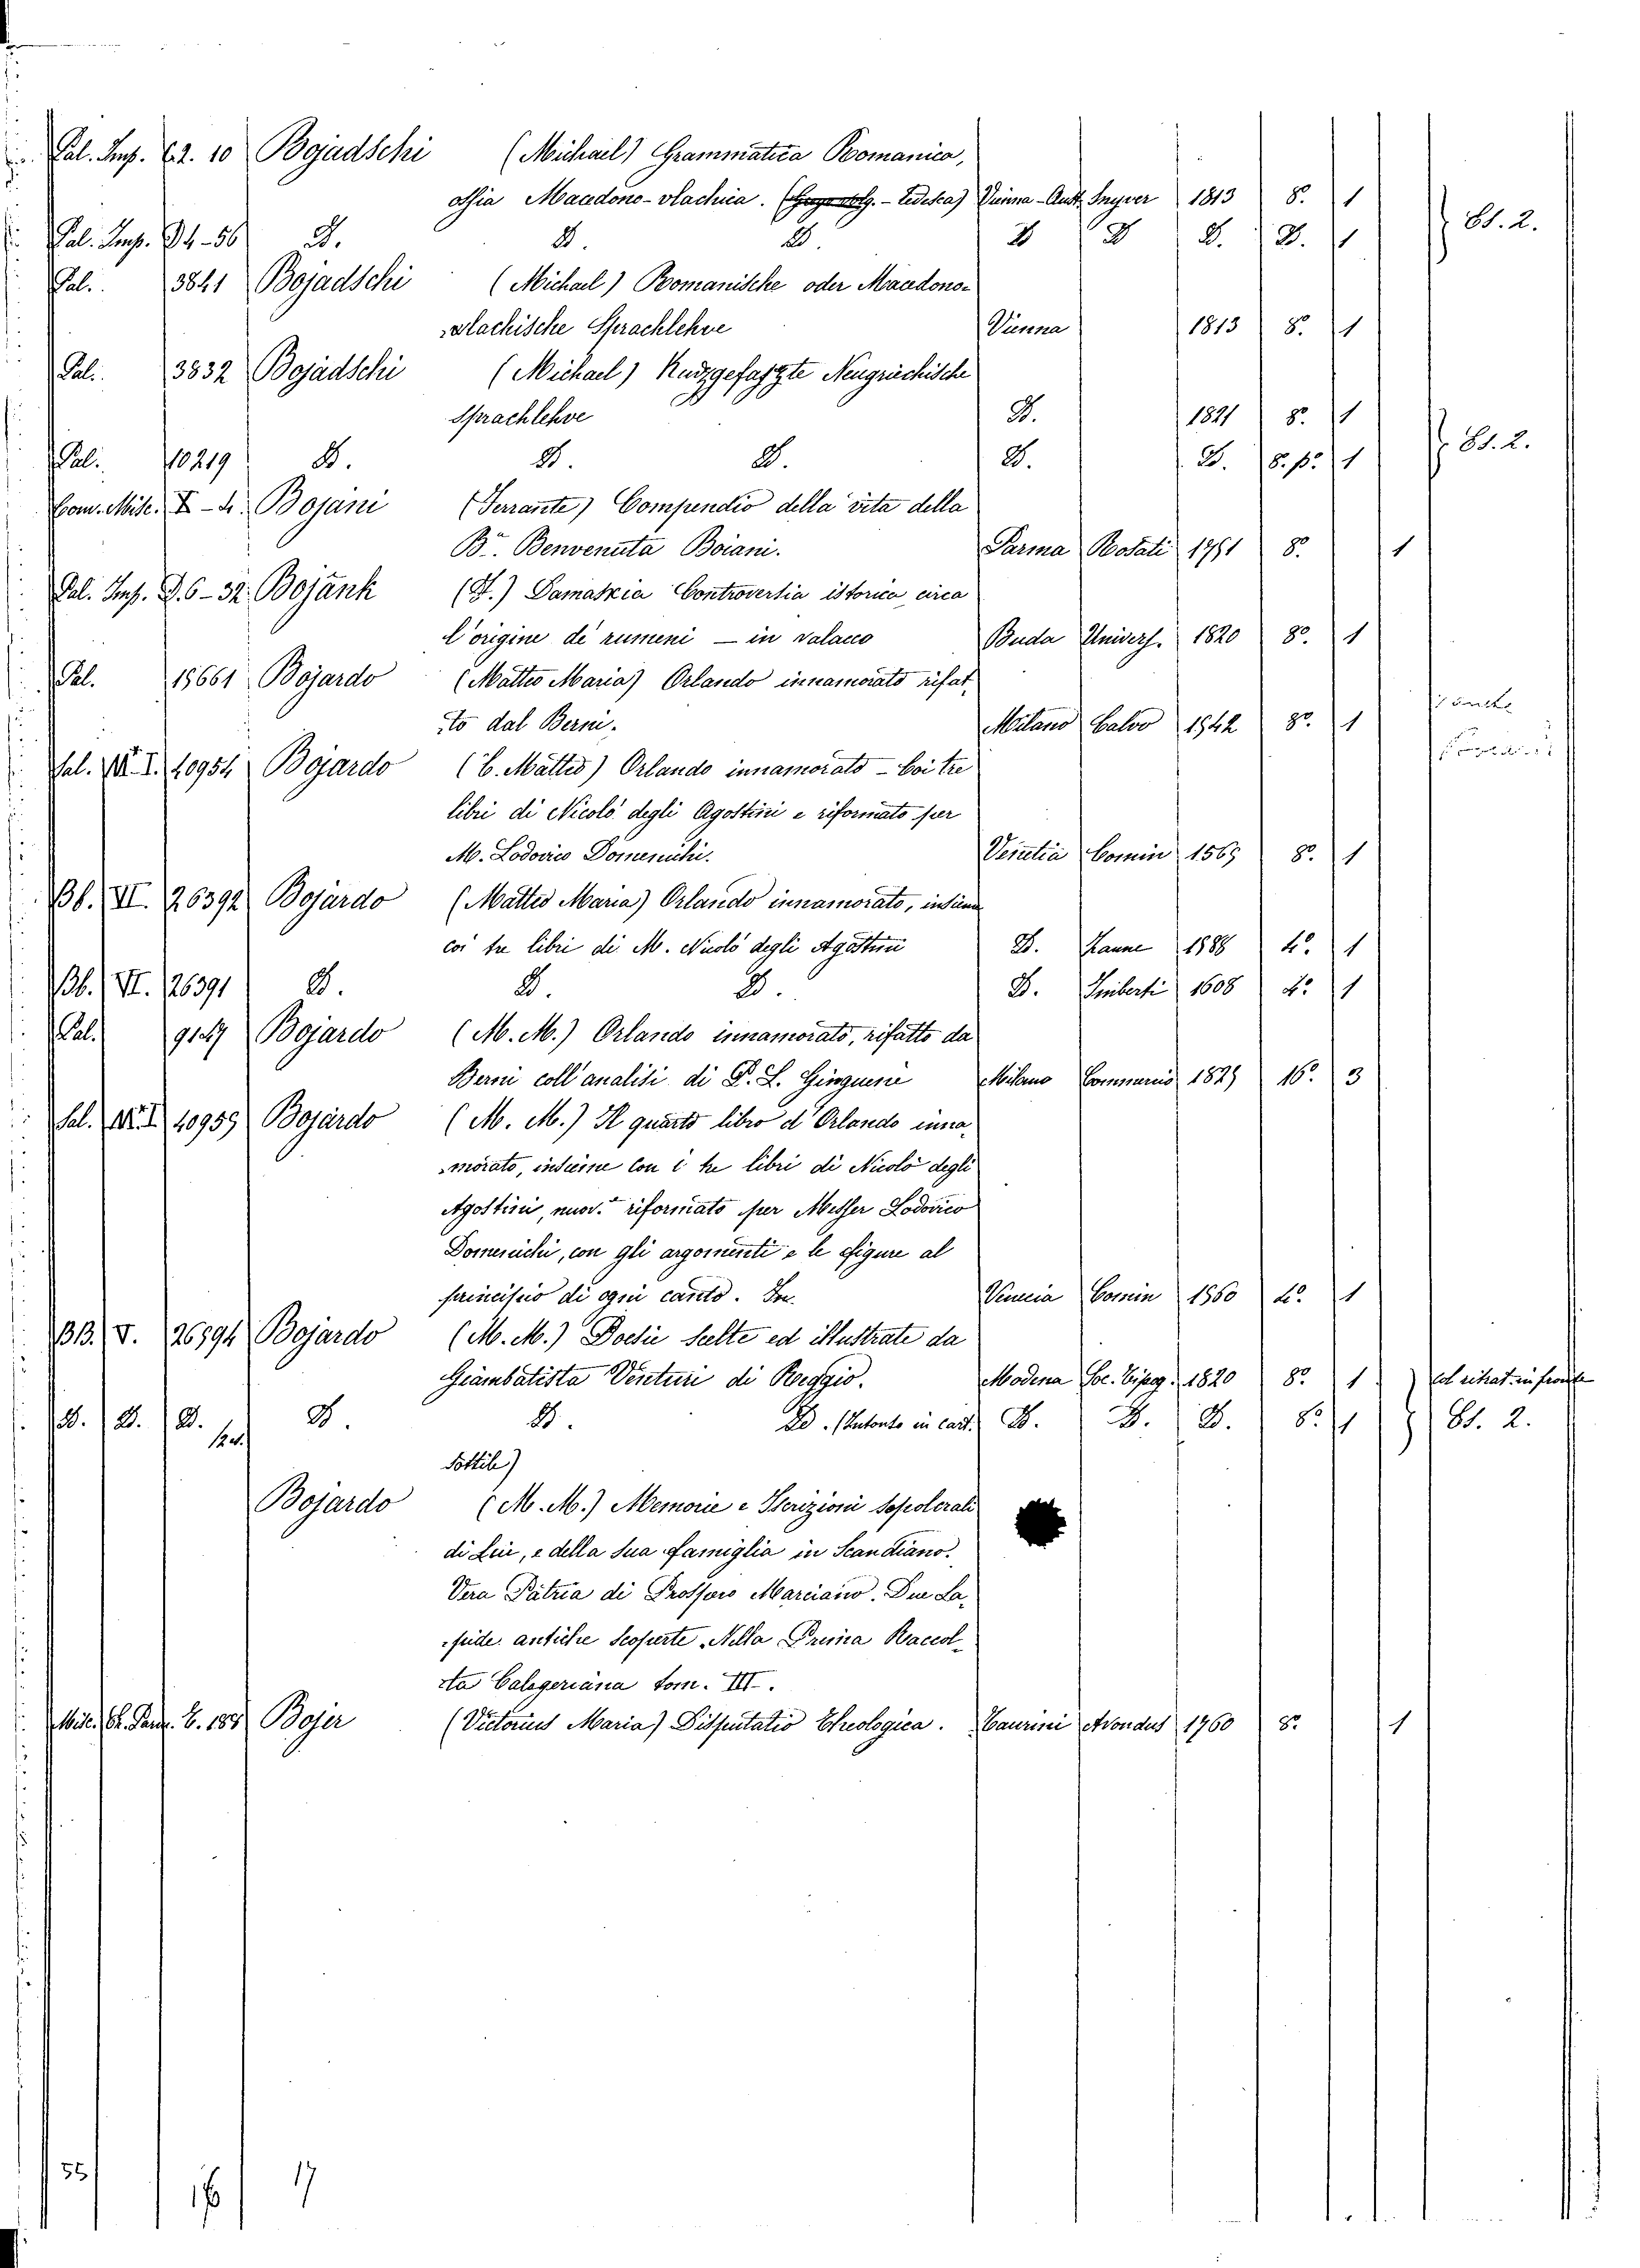 Pal. Imp. C.2. 10 Bojadschi (Michail) Grammatica Romanica,
ossia Macedono-vlachica. - tedesca) Vienna - Aust. Snyver 1813 8º 1
Pal. Imp. D4-56 D. D. D. D D D. D. 1 Es. 2.
Pal. 3841 Bojadschi (Michael) Romanische oder Macedono-
vlachische Sprachlehre Vienna 1813 8º 1
Pal. 3832 Bojadschi (Michael) Kurzgefaszte Neugriechische
Sprachlehre D. 1821 8º 1
Pal. 10219 D. D. D. D. D. 8.pº 1 Es. 2.
Com. Misc. X-4. Bojani (Ferrante) Compendio della vita della
Bª. Benvenuta Boiani. Parma Rosati 1791 8º 1
Pal. Imp. D.6-32. Bojank (F.) Damaskia Controversia istorica circa
l'origine de rumeni - in valacco Buda Univers. 1820 8º 1
Pal. 15661 Bojardo (Matteo Maria) Orlando innamorato rifat-
to dal Berni. Milano Calvo 1542 8º 1
Sal. VII. I. 10954 Bojardo (C. Matteo) Orlando innamorato - Coi tre
libri di Nicolò degli Agostini e riformato per
M. Lodovico Domenichi. Venetia Comin 1565 8º 1
Bb. VI. 26392 Bojardo (Matteo Maria) Orlando innamorato, insieme
coi tre libri di M. Nicolò degli Agostini D. Zanne 1588 4º 1
Bb. VI. 26391 D. D. D. D. Imberti 1608 4º 1
Pal. 9147 Bojardo (M. M.) Orlando innamorato, rifatto da
Berni coll'analisi di P. L. Ginguené Milano Commercio 1825 16º 3
Sal. VII. I 10955 Bojardo (M. M.) Il quarto libro d'Orlando inna-
morato, insieme con i tre libri di Nicolò degli
Agostini, nuov. riformato per Messer Lodovico
Domenichi, con gli argomenti e le figure al
principio di ogni canto. In. Venecia Comin 1560 4º 1
BB. V. 26394 Bojardo (M. M.) Poesie scelte ed illustrate da
Giambatista Venturi di Reggio. Modena Soc. Tipog. 1820 8º 1 col ritrat. in fronte
D. D. D. D. D. D. (Intonso in cart. D. D. D. 8º 1 Es. 2.
Sottile)
Bojardo (M. M.) Memorie e Iscrizioni Sepolcrali
di Lui, e della sua famiglia in Scandiano.
Vera Patria di Prospero Marciano. Due La-
pide antiche scoperte. Nella Prima Raccol-
ta Calogeriana tom. III.
Misc. C. 187 Bojer (Victorius Maria) Disputatio Theologica. Taurini Avondus 1760 8º 1
55 16 17